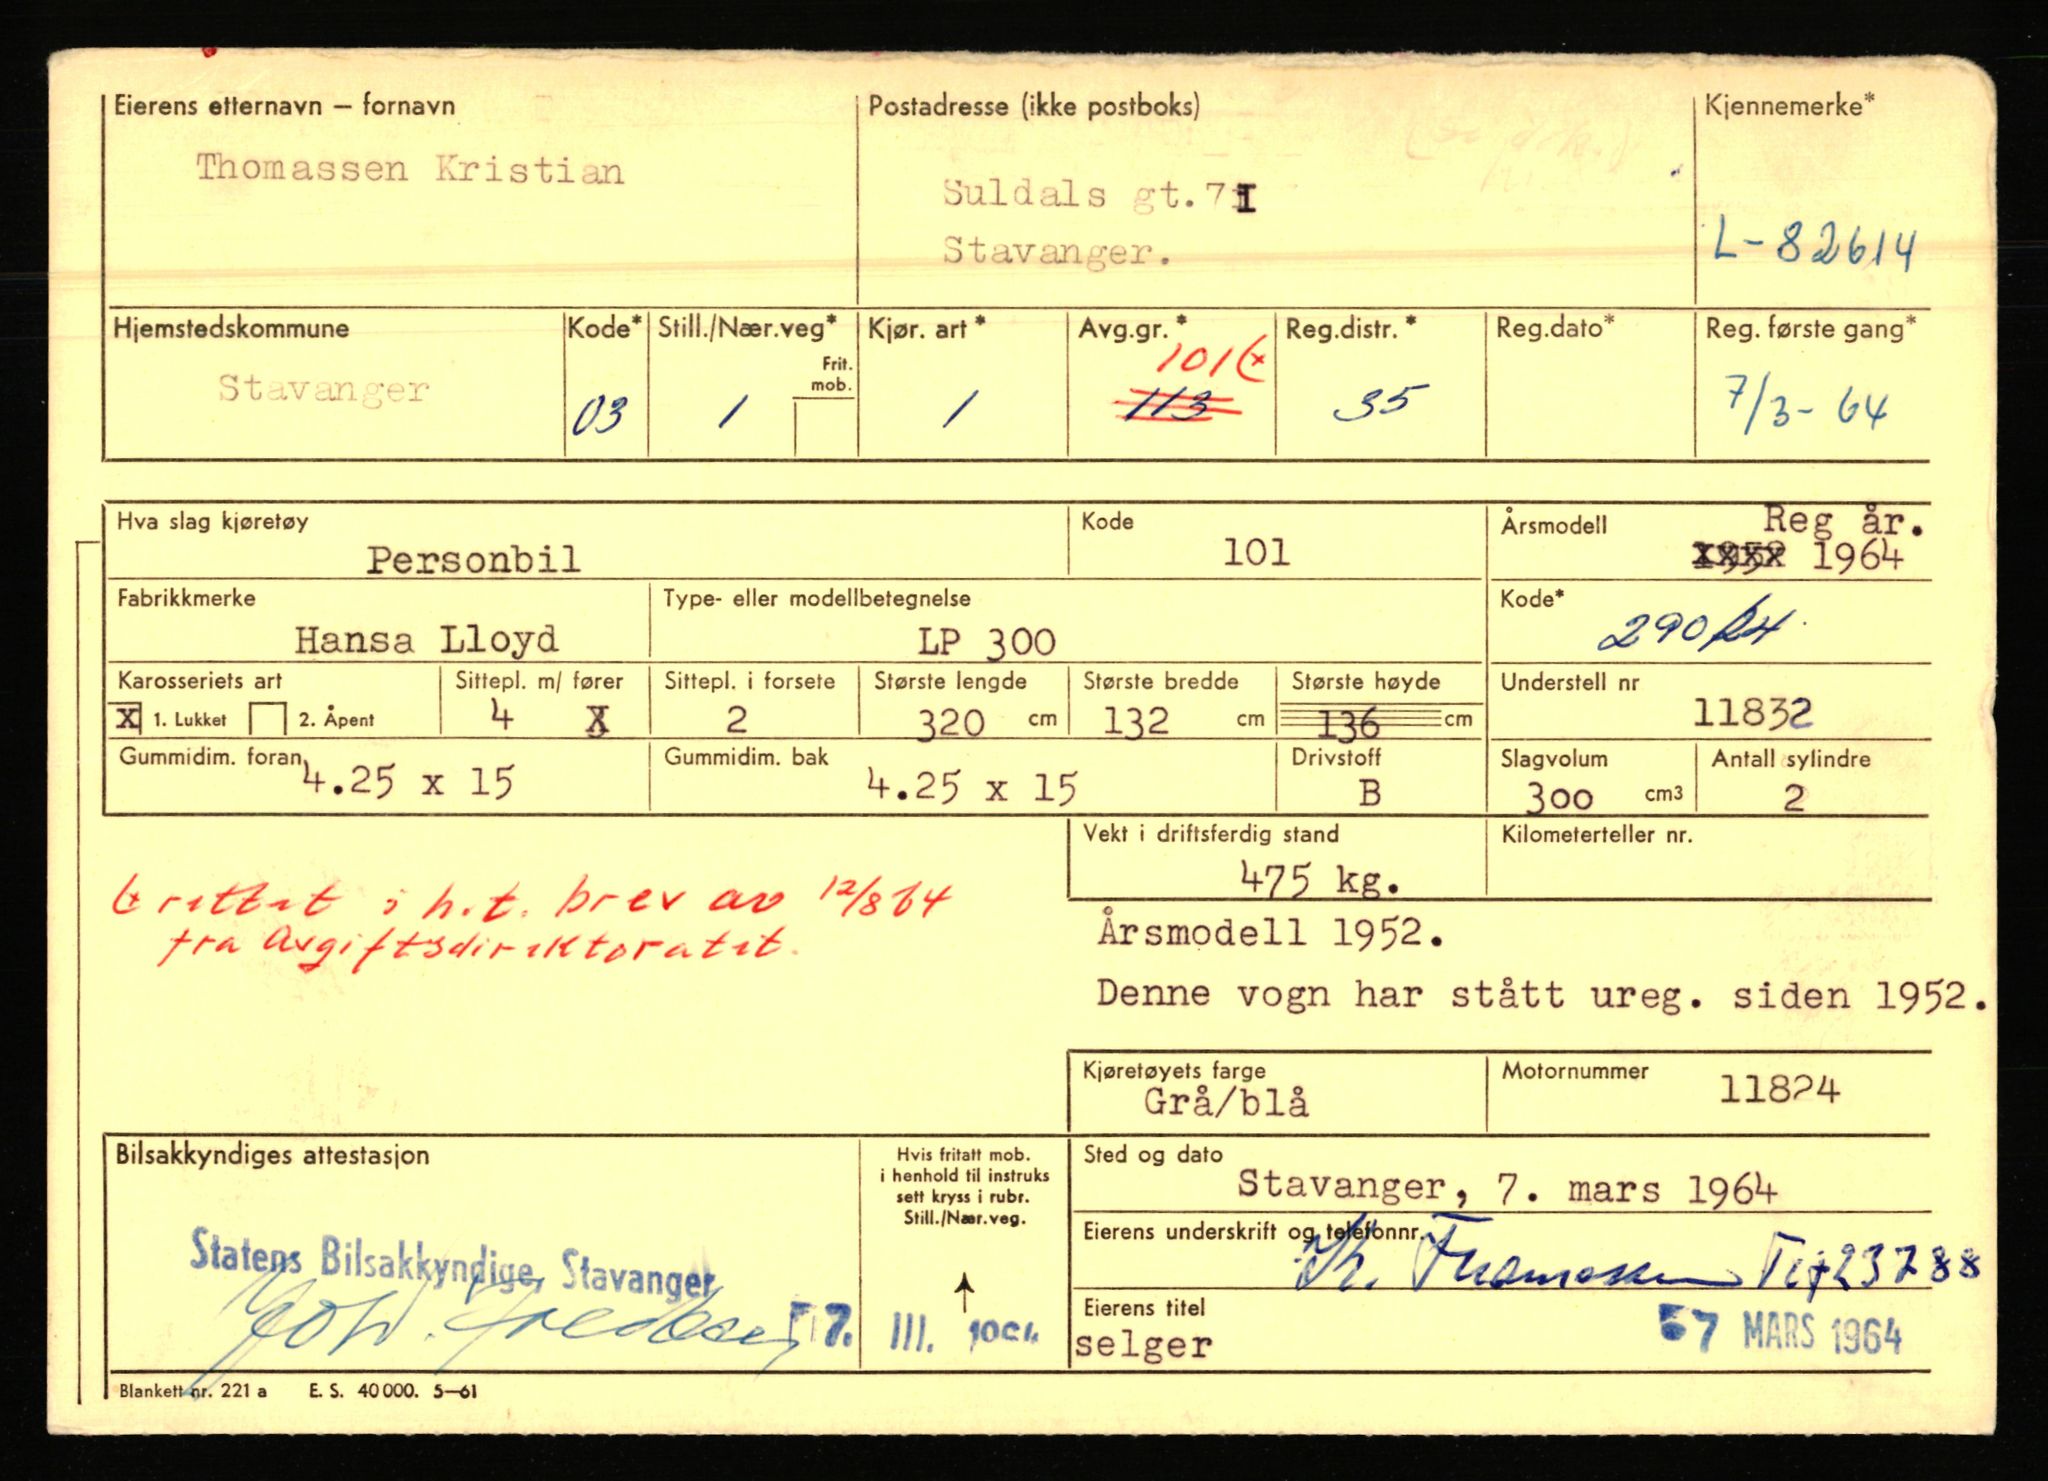 Eierens etternavn – fornavn
Thomassen Kristian
Postadresse (ikke postboks)
Suldals gt.7I
Stavanger.
Kjennemerke*
L-82614
Hjemstedskommune
Stavanger
Kode*
03
Still./Nær.veg*
Frit. mob.
1
Kjør. art*
1
Avg.gr.*
101 (x
113
Reg.distr.*
35
Reg.dato*
Reg. første gang*
7/3-64
Hva slag kjøretøy
Personbil
Kode
101
Årsmodell
Reg år.
1952 1964
Fabrikkmerke
Hansa Lloyd
Type- eller modellbetegnelse
LP 300
Kode*
Karosseriets art
X 1. Lukket 2. Åpent
Sittepl. m/ fører
4 X
Sittepl. i forsete
2
Største lengde
320 cm
Største bredde
132 cm
Største høyde
136 cm
Understell nr
11832
Gummidim. foran
4.25 x 15
Gummidim. bak
4.25 x 15
Drivstoff
B
Slagvolum
300 cm3
Antall sylindre
2
Vekt i driftsferdig stand
475 kg.
Kilometerteller nr.
(x rettet i h.t. brev av 12/8 64
fra Avgiftsdirektoratet.
Årsmodell 1952.
Denne vogn har stått ureg. siden 1952.
Kjøretøyets farge
Grå/blå
Motornummer
11824
Bilsakkyndiges attestasjon
Statens Bilsakkyndige, Stavanger
7. III. 1964
Hvis fritatt mob.
i henhold til instruks
sett kryss i rubr.
Still./Nær.veg.
Sted og dato
Stavanger, 7. mars 1964
Eierens underskrift og telefonnr.
Kr. Thomassen Tlf 23788
Eierens titel
selger
7 MARS 1964
Blankett nr. 221 a E. S. 40 000. 5–61